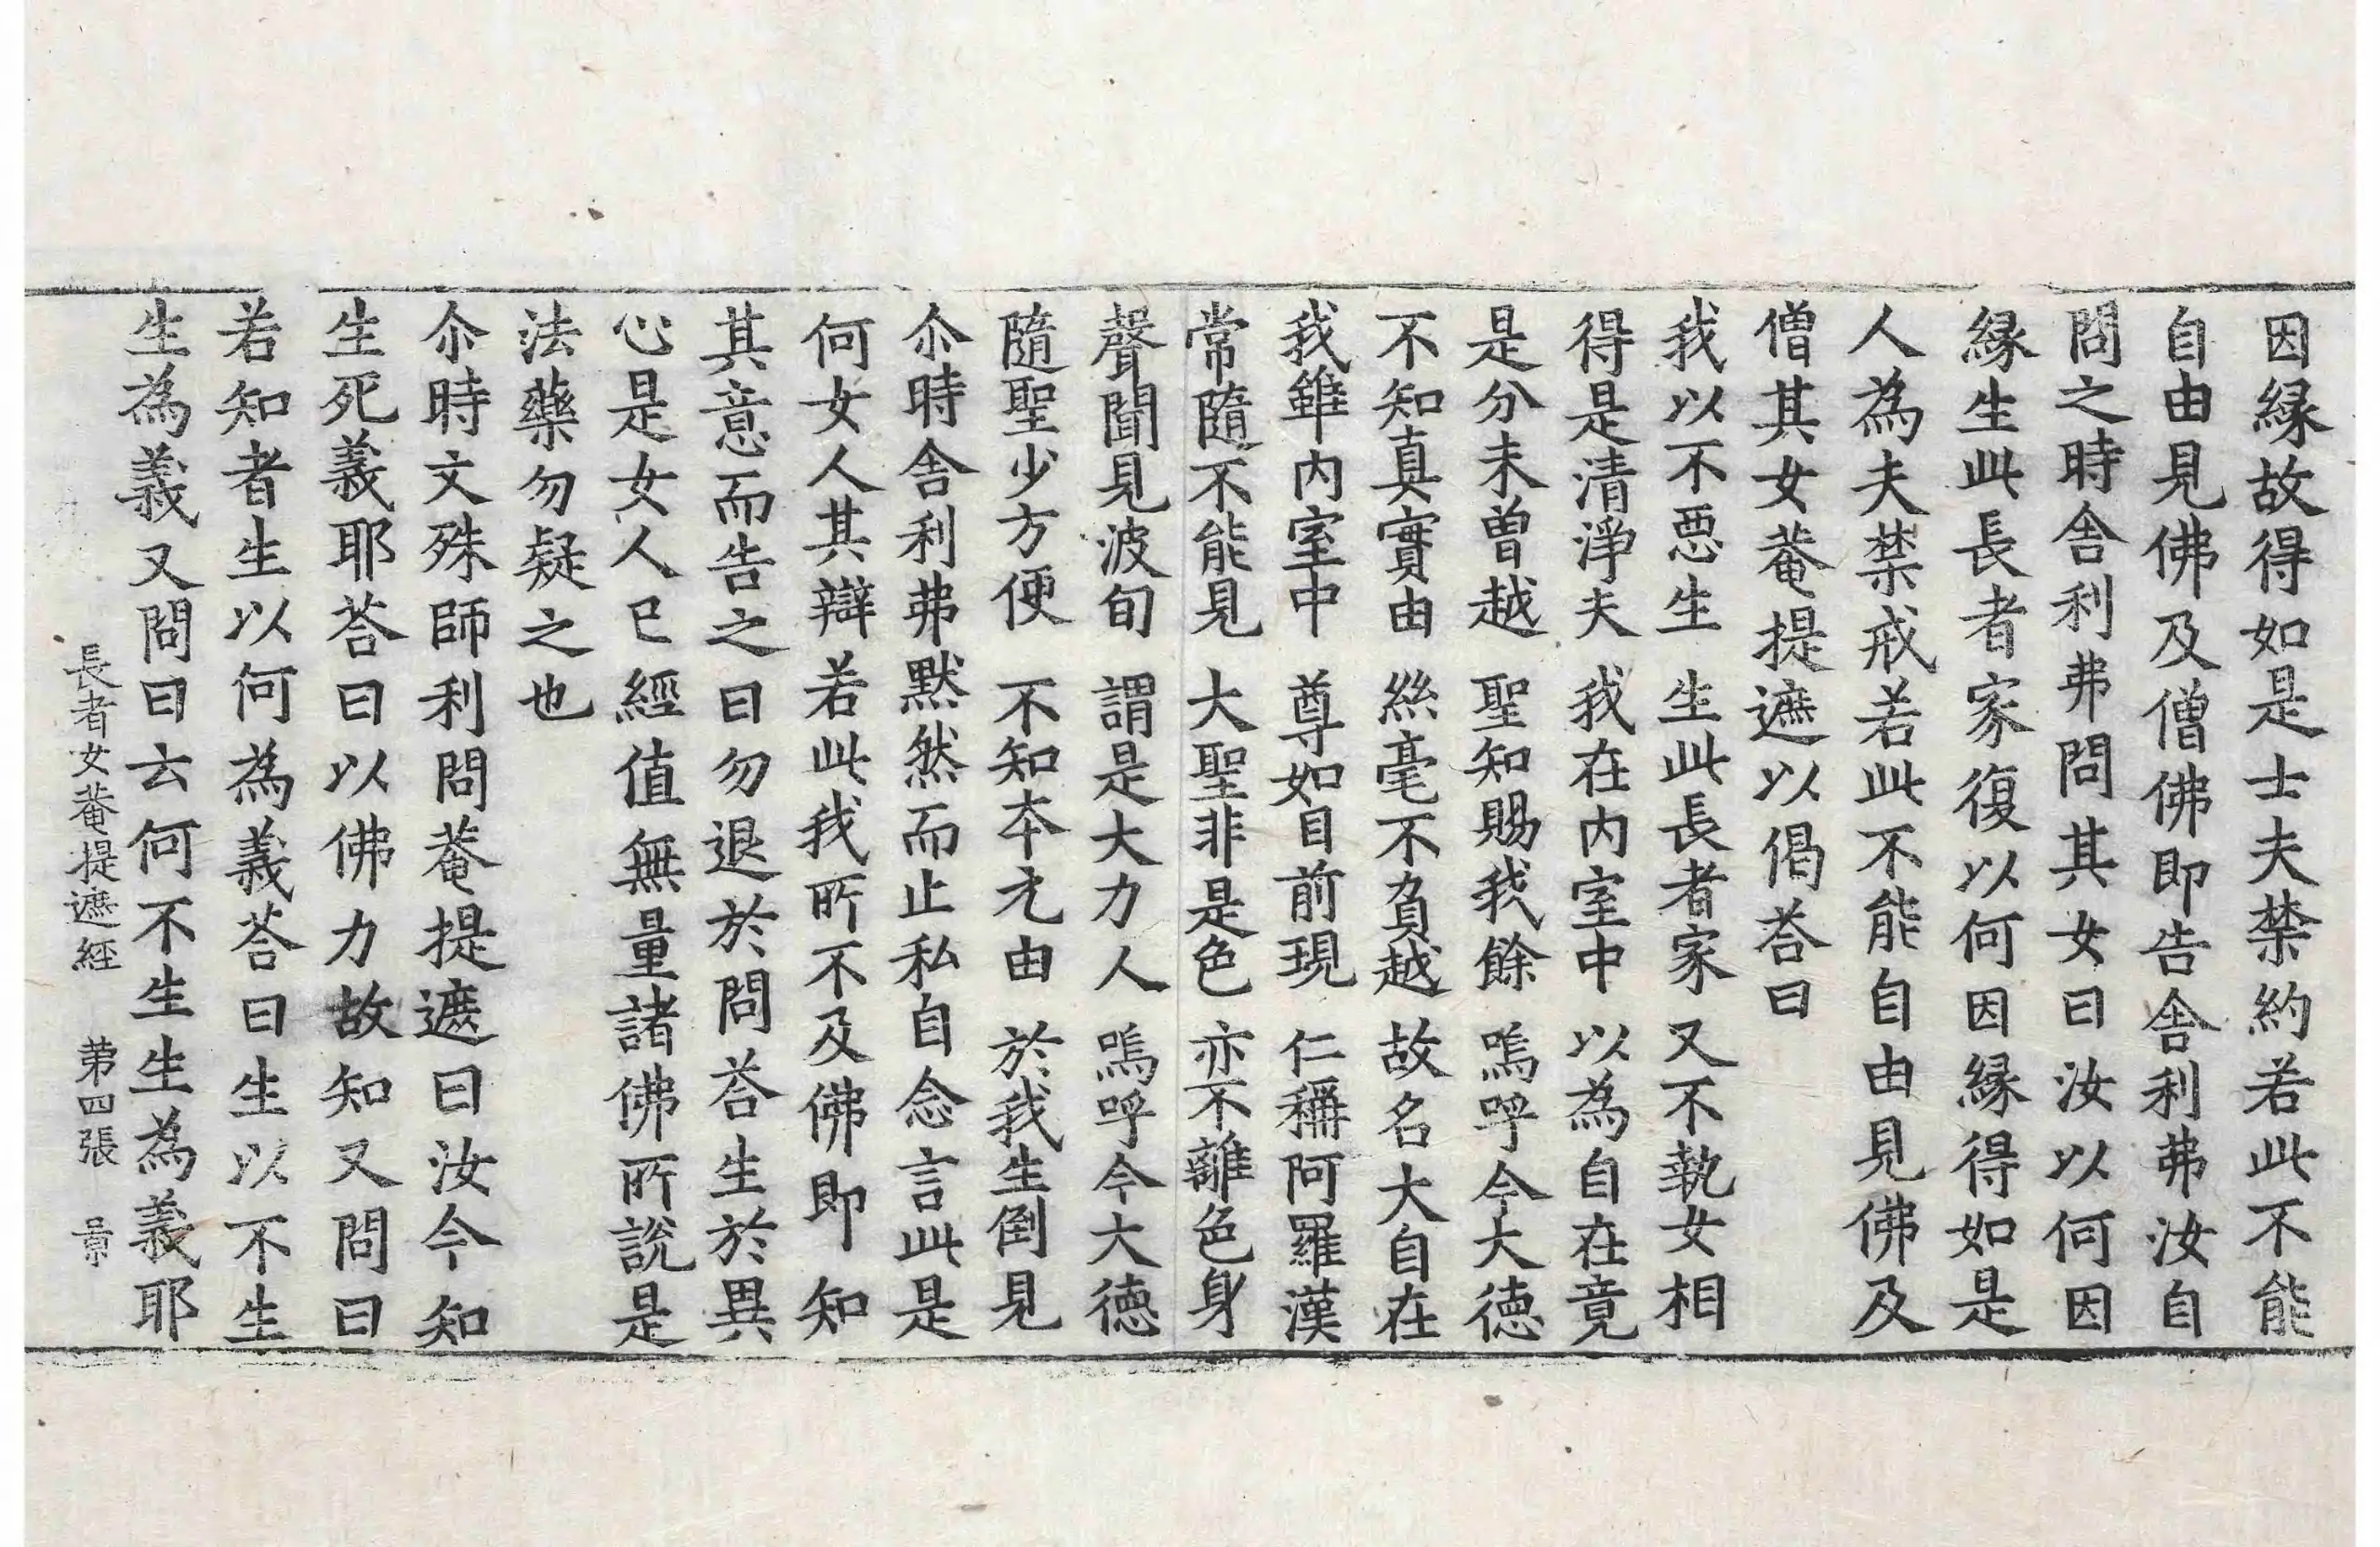 因縁故得如是士夫禁約若此不能
自由見佛及僧佛即告舎利弗汝自
問之時舎利弗問其女曰汝以何因
縁生此長者家復以何因縁得如是
人為夫禁戒若此不能自由見佛及
僧其女菴提遮以偈荅曰
我以不惡生　生此長者家　又不執女相
得是清淨夫　我在内室中　以為自在竟
是分未曽越　聖知賜我餘　嗚呼今大徳
不知真實由　絲毫不負越　故名大自在
我雖内室中　尊如目前現　仁稱阿羅漢
常隨不能見　大聖非是色　亦不離色身
聲聞見波旬　謂是大力人　嗚呼今大徳
隨聖少方便　不知本元由　於我生倒見
尒時舎利弗黙然而止私自念言此是
何女人其辯若此我所不及佛即知
其意而告之曰勿退於問荅生於異
心是女人已經值無量諸佛所說是
法藥勿疑之也
尒時文殊師利問菴提遮曰汝今知
生死義耶荅曰以佛力故知又問曰
若知者生以何為義荅曰生以不生
生為義又問曰云何不生生為義耶
長者女菴提遮經　第四張　景